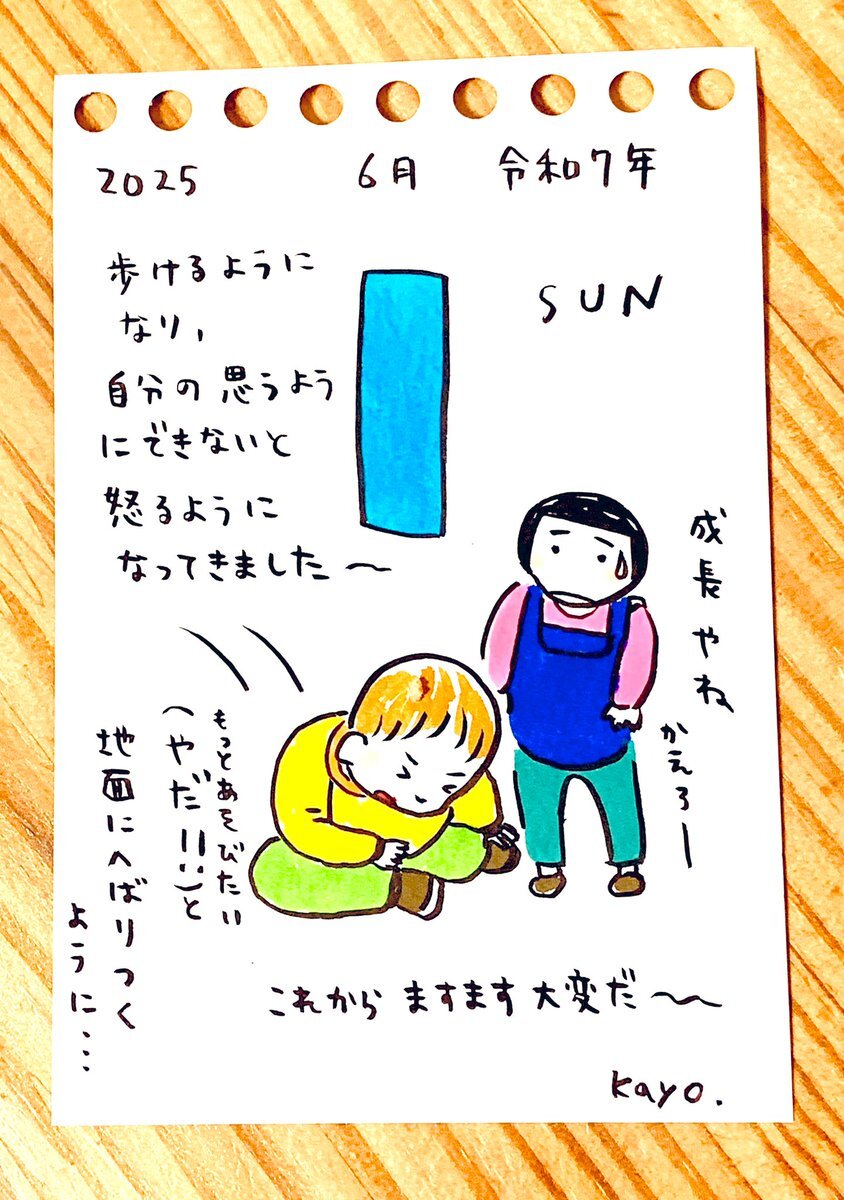 2025 6月 令和7年
SUN
1
歩けるように
なり、
自分の思うよう
にできないと
怒るように
なってきました〜
成長やね
かえろー
もっとあそびたい
「やだ!!」と
地面にへばりつく
ように・・・
これからますます大変だ〜
kayo.